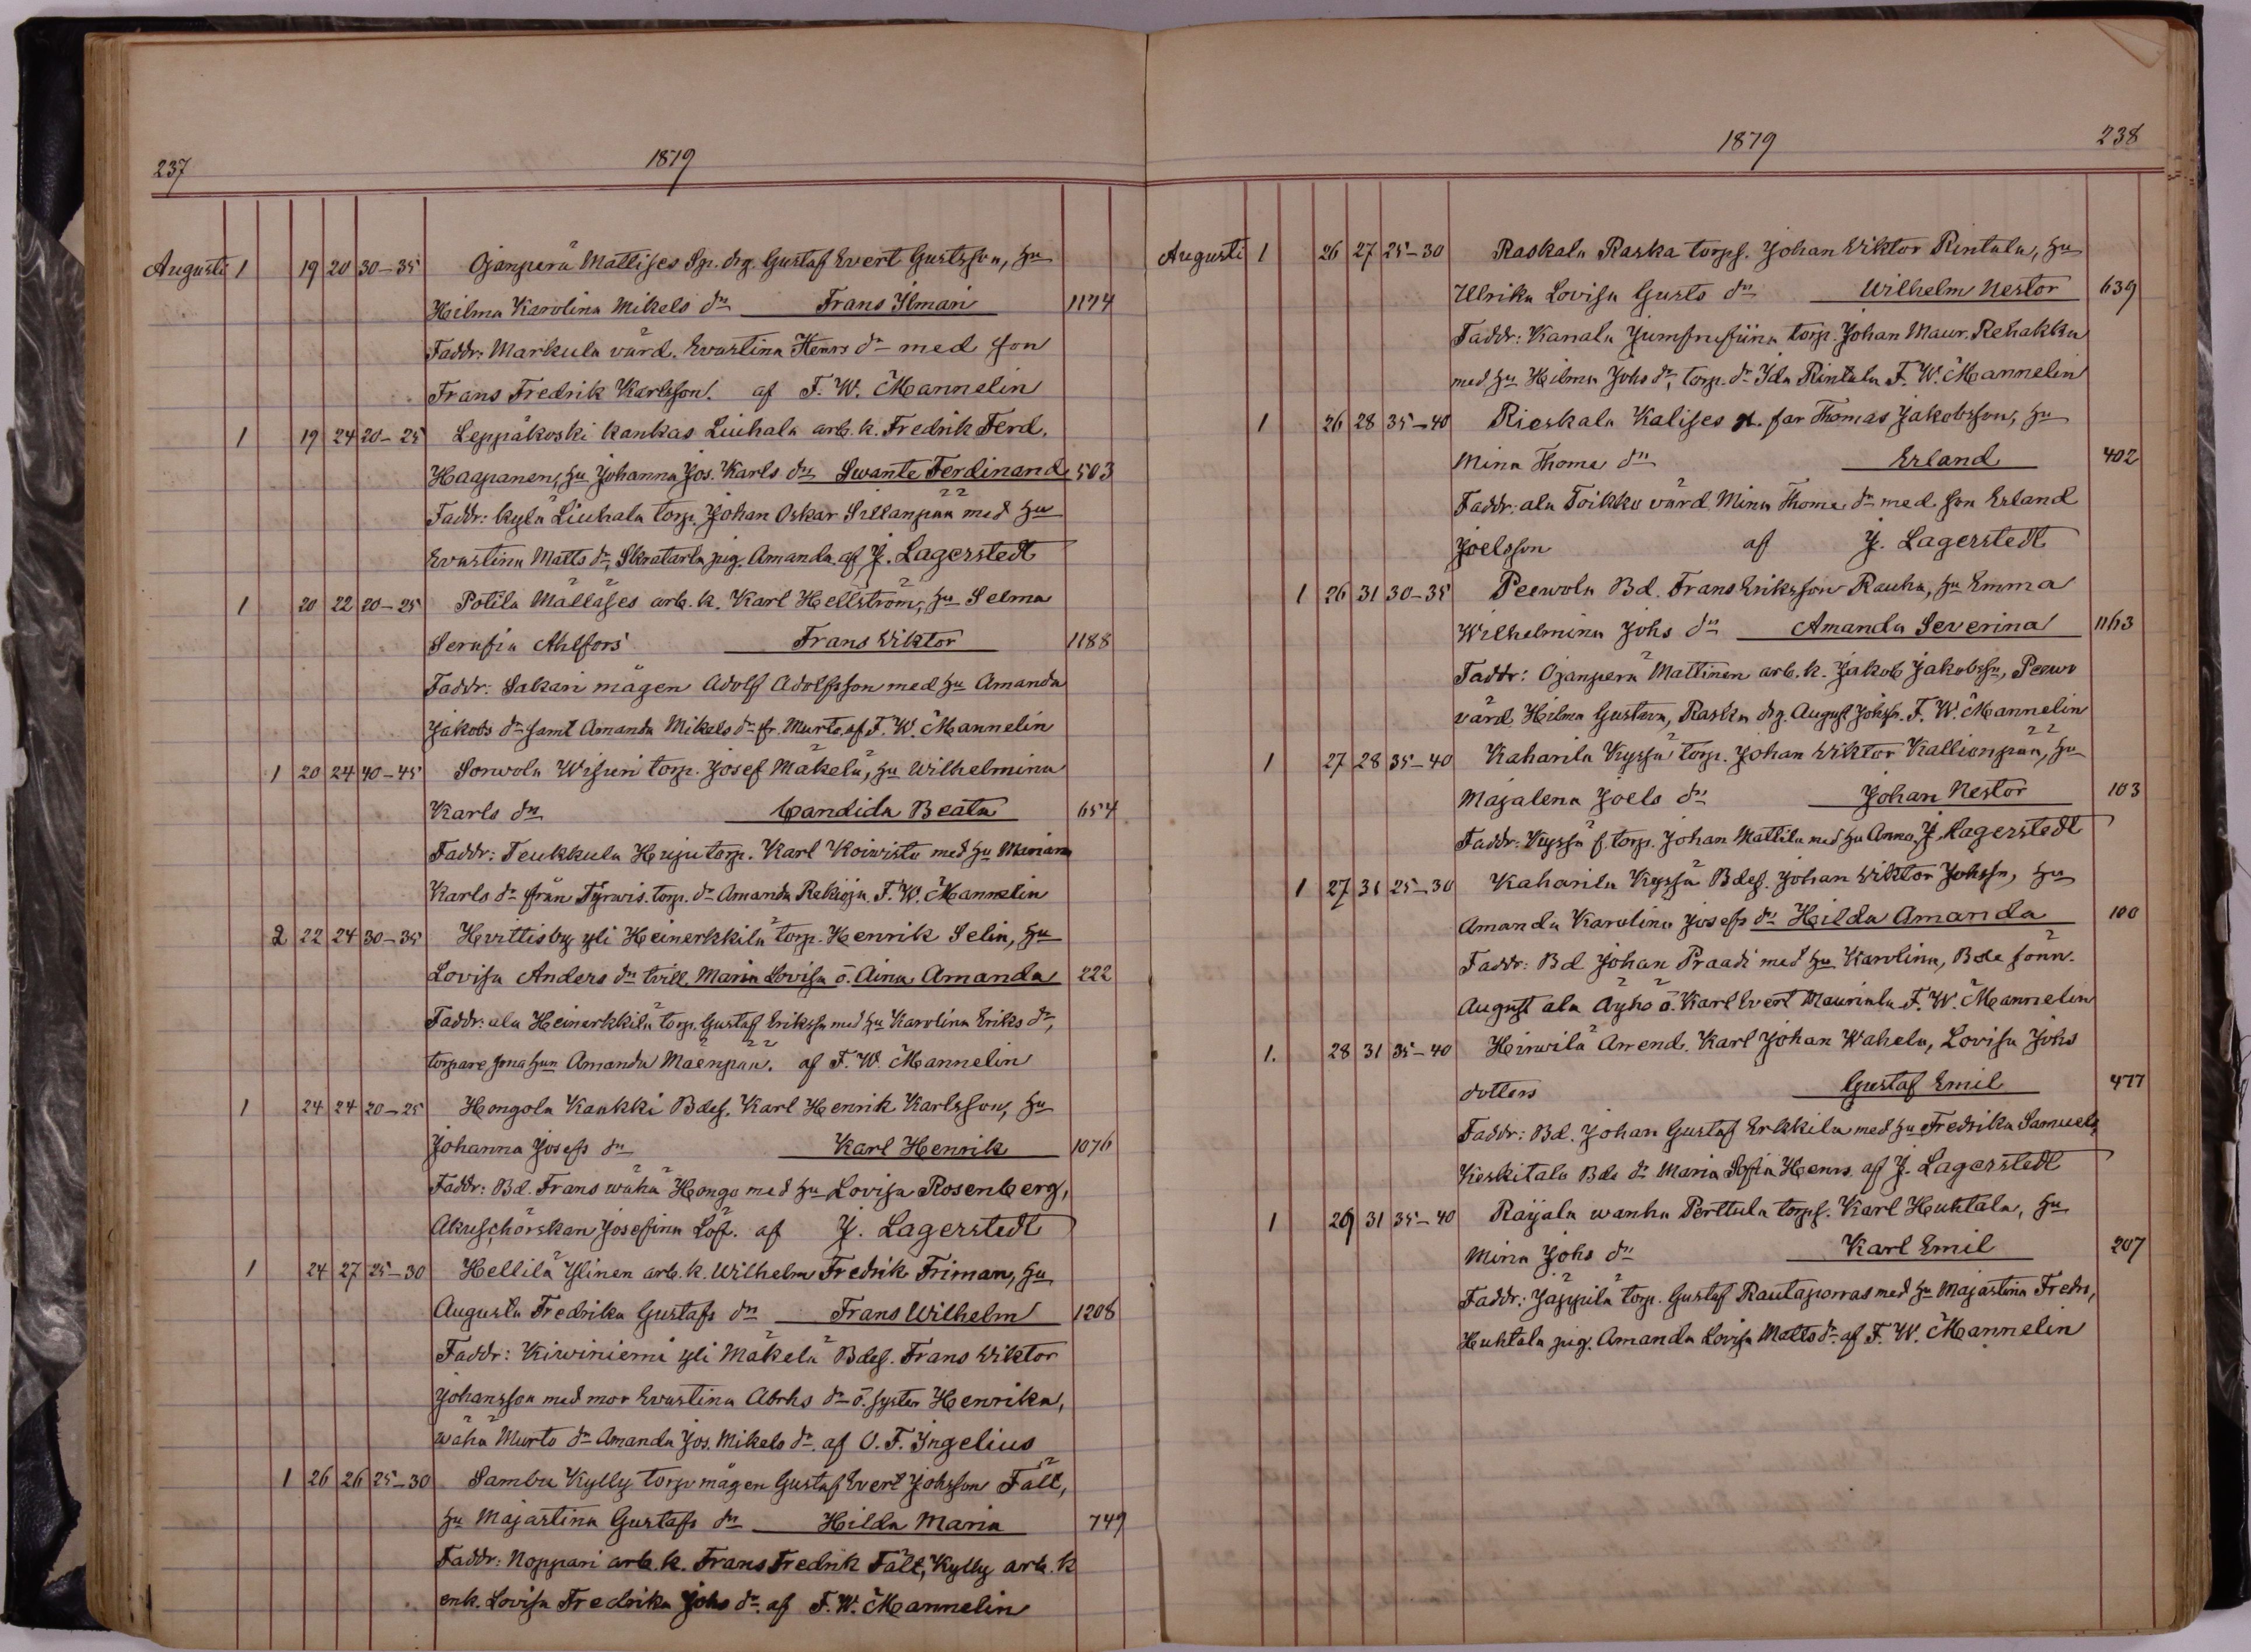 237
1879
Augusti 1 19 20 30-35 Ojanperä Mattises Sp. drg. Gustaf Evert Gustafson, hu
Hilma Karolina Mikels dr Frans Ilmari 1174
Faddr: Markula värd. Evastina Henrs dr med son
Frans Fredrik Karlsson. af F. W. Mannelin
1 19 24 20-25 Leppäkoski Kankas Liuhala arb. k. Fredrik Ferd.
Haapanen, hu Johanna Jos. Karls dr Swante Ferdinand 503
Faddr: Kylä Liuhala torp. Johan Oskar Sillanpää med hu
Evastina Matts dr, Skratarla pig. Amanda. af J. Lagerstedt
1 20 22 20-25 Potila Mälläses arb. k. Karl Hellström, hu Selma
Serafia Ahlfors Frans Viktor 1188
Faddr: Sakari mågen Adolf Adolfsson med hu Amanda
Jakobs dr samt Amanda Mikels dr fr. Murto. af F. W. Mannelin
1 20 24 40-45 Sorwola Wisuri torp. Josef Mäkelä, hu Wilhelmina
Karls dr Candida Beata 654
Faddr: Teukkula Heiju torp. Karl Koiwisto med hu Mariana
Karls dr från Tyrwis. torp. dr Amanda Rekioja. F. W. Mannelin
2 22 24 30-35 Hvittisby yli Heinerkkilä torp. Henrik Selin, hu
Lovisa Anders dr tvill. Maria Lovisa o. Aina Amanda 222
Faddr: ala Heinerkkilä torp. Gustaf Erikssn med hu Karolina Eriks dr,
torpare sonahun Amanda Mäenpää. af F. W. Mannelin
1 24 24 20-25 Hongola Kaukki Bdes. Karl Henrik Karlsson, hu
Johanna Josefs dr Karl Henrik 1076
Faddr: Bd. Frans wähä Hongo med hu Lovisa Rosenberg,
Akuschörskan Josefina Löf. af J. Lagerstedt
1 24 27 25-30 Hellilä Ylinen arb. k. Wilhelm Fredrik Friman, hu
Augusta Fredrika Gustafs dr Frans Wilhelm 1208
Faddr: Kiwiniemi yli Mäkelä Bdes. Frans Viktor
Johansson med mor Evastina Abrhs dr o. syster Henrika,
wähä Murto dr Amanda Jos. Mikels dr. af O. F. Ingelius
1 26 26 25-30 Sambu Kylly torp mågen Gustaf Evert Johsson Fält,
hu Majastina Gustafs dr Hilda Maria 749
Faddr: Noppari arb. k. Frans Fredrik Fält, Kylly arb. k
enk. Lovisa Fredrika Johs dr. af F. W. Mannelin
1879
238
Augusti 1 26 27 25-30 Raskala Raska torps. Johan Viktor Rintala, hu
Ulrika Lovisa Gusts dr Wilhelm Nestor 639
Faddr: Kanala torp. Johan Maur. Rehakka
med hu Hilma Johs dr, torp. dr Ida Rintala F. W. Mannelin
1 26 28 35-40 Rieskala Kalises far Thomas Jakobsson, hu
Mina Thome dr Erland 402
Faddr: ala Toikko värd Mina Thome dr med son Erland
Joelsson af J. Lagerstedt
1 26 31 30-35 Peewola Bd. Frans Eriksson Rauha, hu Emma
Wilhelmina Johs dr Amanda Severina 1163
Faddr: Ojanperä Mattinen arb. k. Jakob Jakobssn, Peewo
värd. Hilma Gustava, Raska drg. August Johsn. F. W. Mannelin
1 27 28 35-40 Kaharila Kyssä torp. Johan Viktor Kallionpää, hu
Majalena Joels dr Johan Nestor 103
Faddr: Kyssä s. torp. Johan Mattila med hu Anna. J. Lagerstedt
1 27 31 25-30 Kaharila Kyssä Bdes. Johan Viktor Johssn, hu
Amanda Karolina Josefs dr Hilda Amanda 100
Faddr: Bd Johan Praadi med hu Karolina, Bde sönn.
August ala Äyhö o. Karl Evert Mauriala F. W. Mannelin
1. 28 31 35-40 Heinwilä Arrend. Karl Johan Wahela, Lovisa Johs
dotters Gustaf Emil 477
Faddr: Bd. Johan Gustaf Erkkila med hu Fredrika Samuels,
Keskitalo Bde dr Maria Sofia Henrs. af J. Lagerstedt
1 29 31 35-40 Raijala wanha Perttula torps. Karl Huhtala, hu
Mina Johs dr Karl Emil 207
Faddr: Jäppilä torp. Gustaf Rautaporras med hu Majastina Fredrs,
Huhtala pig. Amanda Lovisa Matts dr af F. W. Mannelin